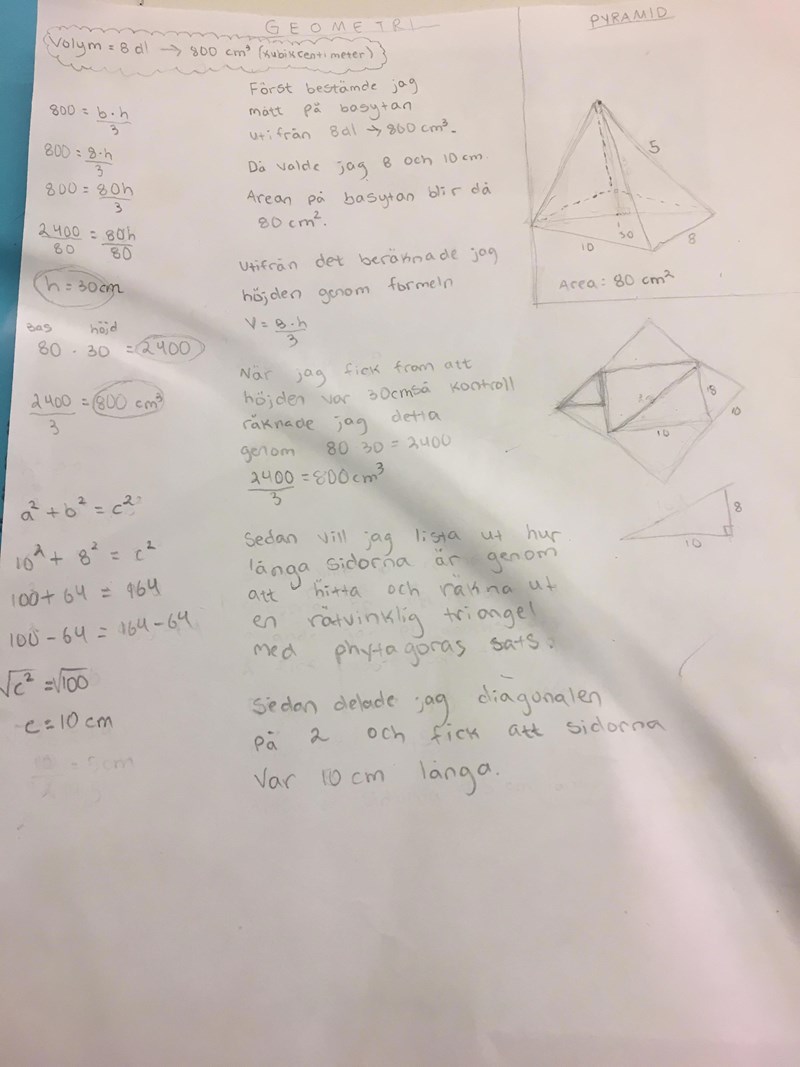 GEOMETRI
Volym = 8 dl → 800 cm³ (kubikcentimeter)
800 = b·h/3
800 = B·h/3
800 = 80h/3
2400/80 = 80h/80
h = 30cm
bas höjd
80 · 30 = 2400
2400/3 = 800 cm³
a² + b² = c²
10² + 8² = c²
100 + 64 = 164
100 - 64 = 164 - 64
√c² = √100
c = 10 cm
= 5cm
Först bestämde jag
mått på basytan
utifrån 8dl → 800 cm³.
Då valde jag 8 och 10 cm
Arean på basytan blir då
80 cm².
Utifrån det beräknade jag
höjden genom formeln
V = B·h/3
När jag fick fram att
höjden var 30cm så kontroll
räknade jag detta
genom 80 30 = 2400
2400/3 = 800 cm³
Sedan vill jag lista ut hur
långa sidorna är genom
att hitta och räkna ut
en rätvinklig triangel
med phytagoras sats.
Sedan delade jag diagonalen
på 2 och fick att sidorna
var 10 cm långa.
PYRAMID
5
30
10
8
Area: 80 cm²
8
10
10
8
10